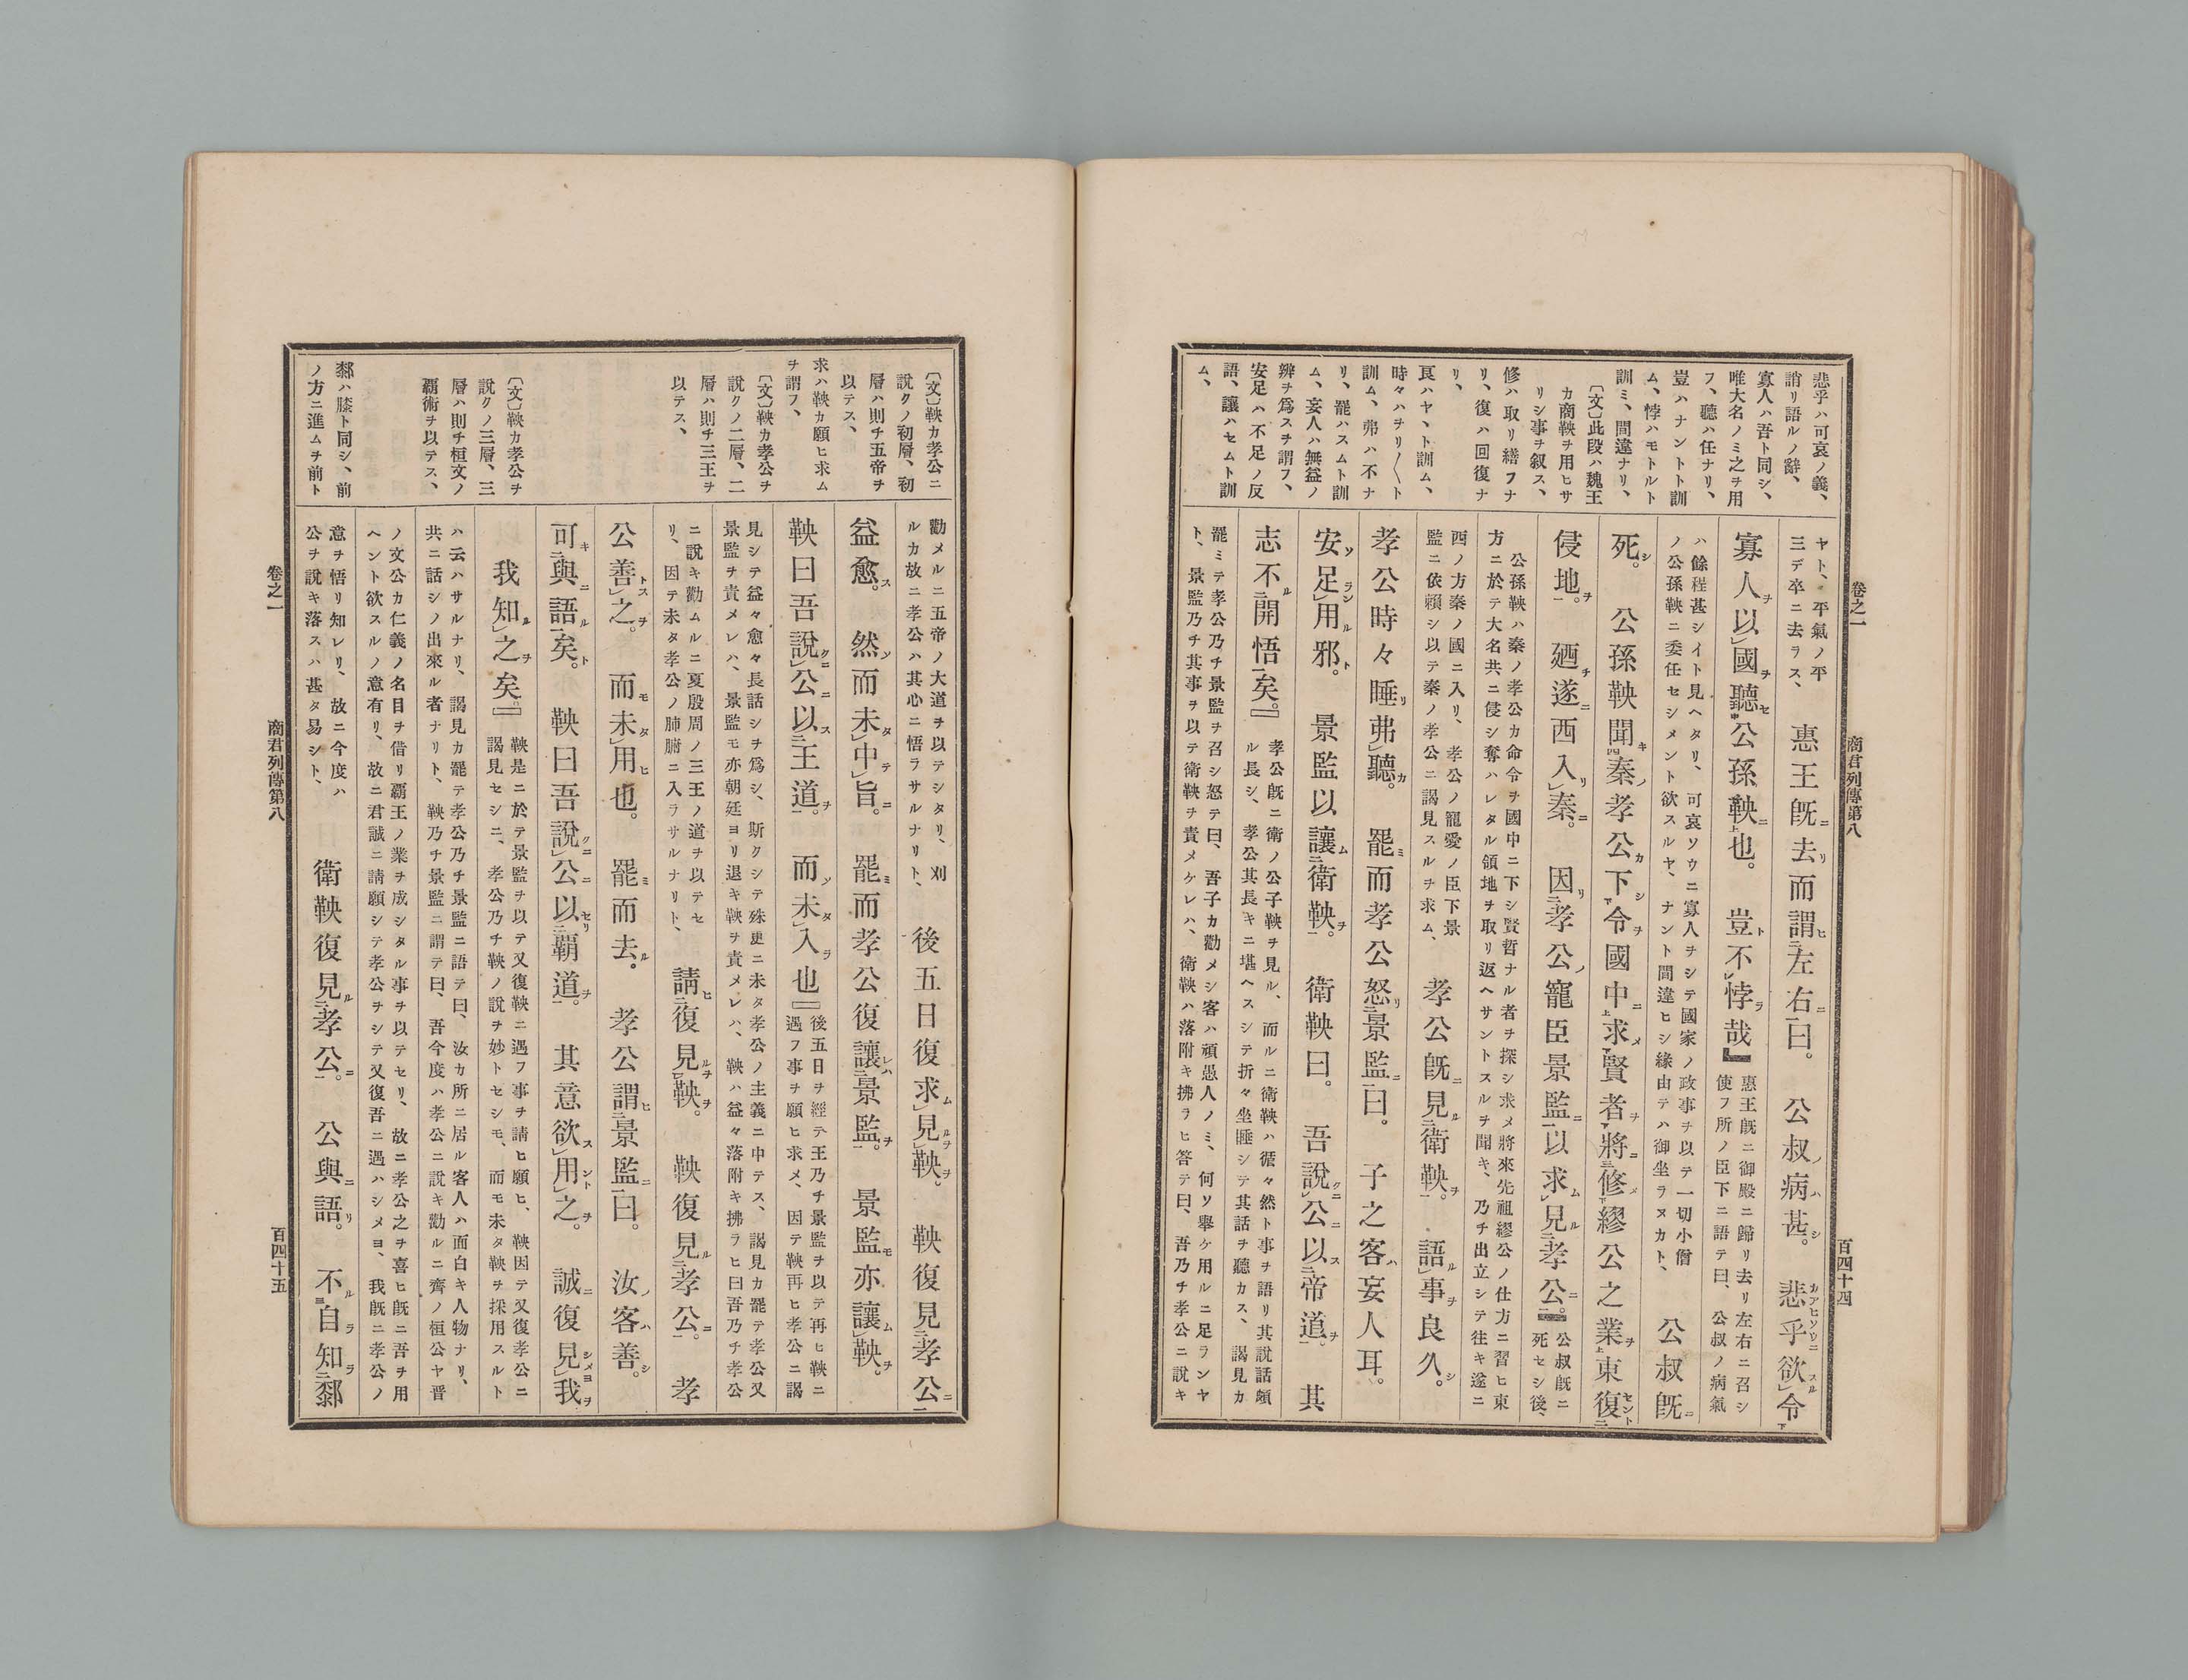 卷之一　商君列傳第八　百四十四
悲乎ハ可哀ノ義、
誚リ語ルノ辭、
寡人ハ吾ト同シ、
唯大名ノミ之ヲ用
フ、聽ハ任ナリ、
豈ハナントト訓
ム、悖ハモトルト
訓ミ、間違ナリ、
〔文〕此段ハ魏王
カ商鞅ヲ用ヒサ
リシ事ヲ叙ス、
修ハ取リ繕フナ
リ、復ハ回復ナ
リ、
良ハヤヽト訓ム、
時々ハチリ〳〵ト
訓ム、弗ハ不ナ
リ、罷ハスムト訓
ム、妄人ハ無益ノ
辨ヲ爲スヲ謂フ、
安足ハ不足ノ反
語、讓ハセムト訓
ム、
ヤト、平氣ノ平
三デ卒ニ去ラス、
惠王既ニ去リ而謂ヒ二左右ニ一曰。公叔ノ病ハ甚シ。悲乎カアヒソウニ欲スルレ令下
寡人ヲ以レ國ヲ聽セ中公孫鞅ニ上也。豈ト不レ悖ラ哉』
惠王既ニ御殿ニ歸リ去リ左右ニ召シ
使フ所ノ臣下ニ語テ曰、公叔ノ病氣
ハ餘程甚シイト見ヘタリ、可哀ソウニ寡人ヲシテ國家ノ政事ヲ以テ一切小僧
ノ公孫鞅ニ委任セシメント欲スルヤ、ナント間違ヒシ緣由テハ御坐ラヌカト、
公叔既ニ
死シ。公孫鞅聞キ四秦ノ孝公カ下シ下令ヲ國中ニ上求メ下賢者ヲ將ニ三修メ下繆公之業ヲ上東復セント二
侵地ヲ一。廼チ遂ニ西入リレ秦ニ。因リ二孝公ノ寵臣景監ニ一以求ムレ見ル二孝公ニ一。』
公叔既ニ
死セシ後、
公孫鞅ハ秦ノ孝公カ命令ヲ國中ニ下シ賢哲ナル者ヲ探シ求メ將來先祖繆公ノ仕方ニ習ヒ東
方ニ於テ大名共ニ侵シ奪ハレタル領地ヲ取リ返ヘサントスルヲ聞キ、乃チ出立シテ往キ遂ニ
西ノ方秦ノ國ニ入リ、孝公ノ寵愛ノ臣下景
監ニ依賴シ以テ秦ノ孝公ニ謁見スルヲ求ム、
孝公既ニ見ル二衛鞅ヲ一。語ルレ事ヲ良久シ。
孝公時々睡リ弗レ聽カ。罷ミ而孝公怒リ二景監ニ一曰。子之客ハ妄人耳。
安ソ足ランレ用ルト邪。景監以讓ム二衛鞅ヲ一。衛鞅曰。吾說クニレ公ニ以ス二帝道ヲ一。其
志不ル二開悟一矣。』
孝公既ニ衛ノ公子鞅ヲ見ル、而ルニ衛鞅ハ循々然ト事ヲ語リ其說話頗
ル長シ、孝公其長キニ堪ヘスシテ折々坐睡シテ其話ヲ聽カス、謁見カ
罷ミテ孝公乃チ景監ヲ召シ怒テ曰、吾子カ勸メシ客ハ頑愚人ノミ、何ソ擧ケ用ルニ足ランヤ
ト、景監乃チ其事ヲ以テ衛鞅ヲ責メケレハ、衛鞅ハ落附キ拂ラヒ答テ曰、吾乃チ孝公ニ說キ
〔文〕鞅カ孝公ニ
說クノ初層、初
層ハ則チ五帝ヲ
以テス、
求ハ鞅カ願ヒ求ム
ヲ謂フ、
〔文〕鞅カ孝公ヲ
說クノ二層、二
層ハ則チ三王ヲ
以テス、
〔文〕鞅カ孝公ヲ
說クノ三層、三
層ハ則チ桓文ノ
覇術ヲ以テス、
厀ハ膝ト同シ、前
ノ方ニ進ムヲ前ト
勸メルニ五帝ノ大道ヲ以テシタリ、刈
ルカ故ニ孝公ハ其心ニ悟ラサルナリト、
後五日復求ムレ見ルヲレ鞅ヲ。鞅復見二孝公ニ一
益愈ス。然ソ而未タレ中テレ旨ニ。罷ミ而孝公復讓レハ二景監ヲ一。景監モ亦讓ムレ鞅ヲ。
鞅曰吾說クニレ公ニ以ス二王道ヲ一。而ソ未タレ入ラ也』
後五日ヲ經テ王乃チ景監ヲ以テ再ヒ鞅ニ
遇フ事ヲ願ヒ求メ、因テ鞅再ヒ孝公ニ謁
見シテ益々愈々長話シヲ爲シ、斯クシテ殊更ニ未タ孝公ノ主義ニ中テス、謁見カ罷テ孝公又
景監ヲ責メレハ、景監モ亦朝廷ヨリ退キ鞅ヲ責メレハ、鞅ハ益々落附キ拂ラヒ曰吾乃チ孝公
ニ說キ勸ムルニ夏殷周ノ三王ノ道ヲ以テセ
リ、因テ未タ孝公ノ肺腑ニ入ラサルナリト、
請ヒ二復見ルヲ一レ鞅ヲ。鞅復見ル二孝公ニ一。孝
公善トスレ之ヲ。而モ未タレ用ヒ也。罷ミ而去ル。孝公謂ヒ二景監ニ一曰。汝ノ客ハ善シ。
可キニ二與語ル一矣ト。鞅曰吾說クニレ公ニ以セリ二覇道ヲ一。其意欲スレ用ントレ之ヲ。誠ニ復見シメヨレ我ヲ
我知ルレ之ヲ矣。』
鞅是ニ於テ景監ヲ以テ又復鞅ニ遇フ事ヲ請ヒ願ヒ、鞅因テ又復孝公ニ
謁見セシニ、孝公乃チ鞅ノ說ヲ妙トセシモ、而モ未タ鞅ヲ採用スルト
ハ云ハサルナリ、謁見カ罷テ孝公乃チ景監ニ語テ曰、汝カ所ニ居ル客人ハ面白キ人物ナリ、
共ニ話シノ出來ル者ナリト、鞅乃チ景監ニ謂テ曰、吾今度ハ孝公ニ說キ勸ルニ齊ノ桓公ヤ晋
ノ文公カ仁義ノ名目ヲ借リ覇王ノ業ヲ成シタル事ヲ以テセリ、故ニ孝公之ヲ喜ヒ既ニ吾ヲ用
ヘント欲スルノ意有リ、故ニ君誠ニ請願シテ孝公ヲシテ又復吾ニ遇ハシメヨ、我既ニ孝公ノ
意ヲ悟リ知レリ、故ニ今度ハ
公ヲ說キ落スハ甚タ易シト、
衛鞅復見ル二孝公ニ一。公與ニ語リ。不ルヨ二自ラ知ラ二厀
卷之一　商君列傳第八　百四十五